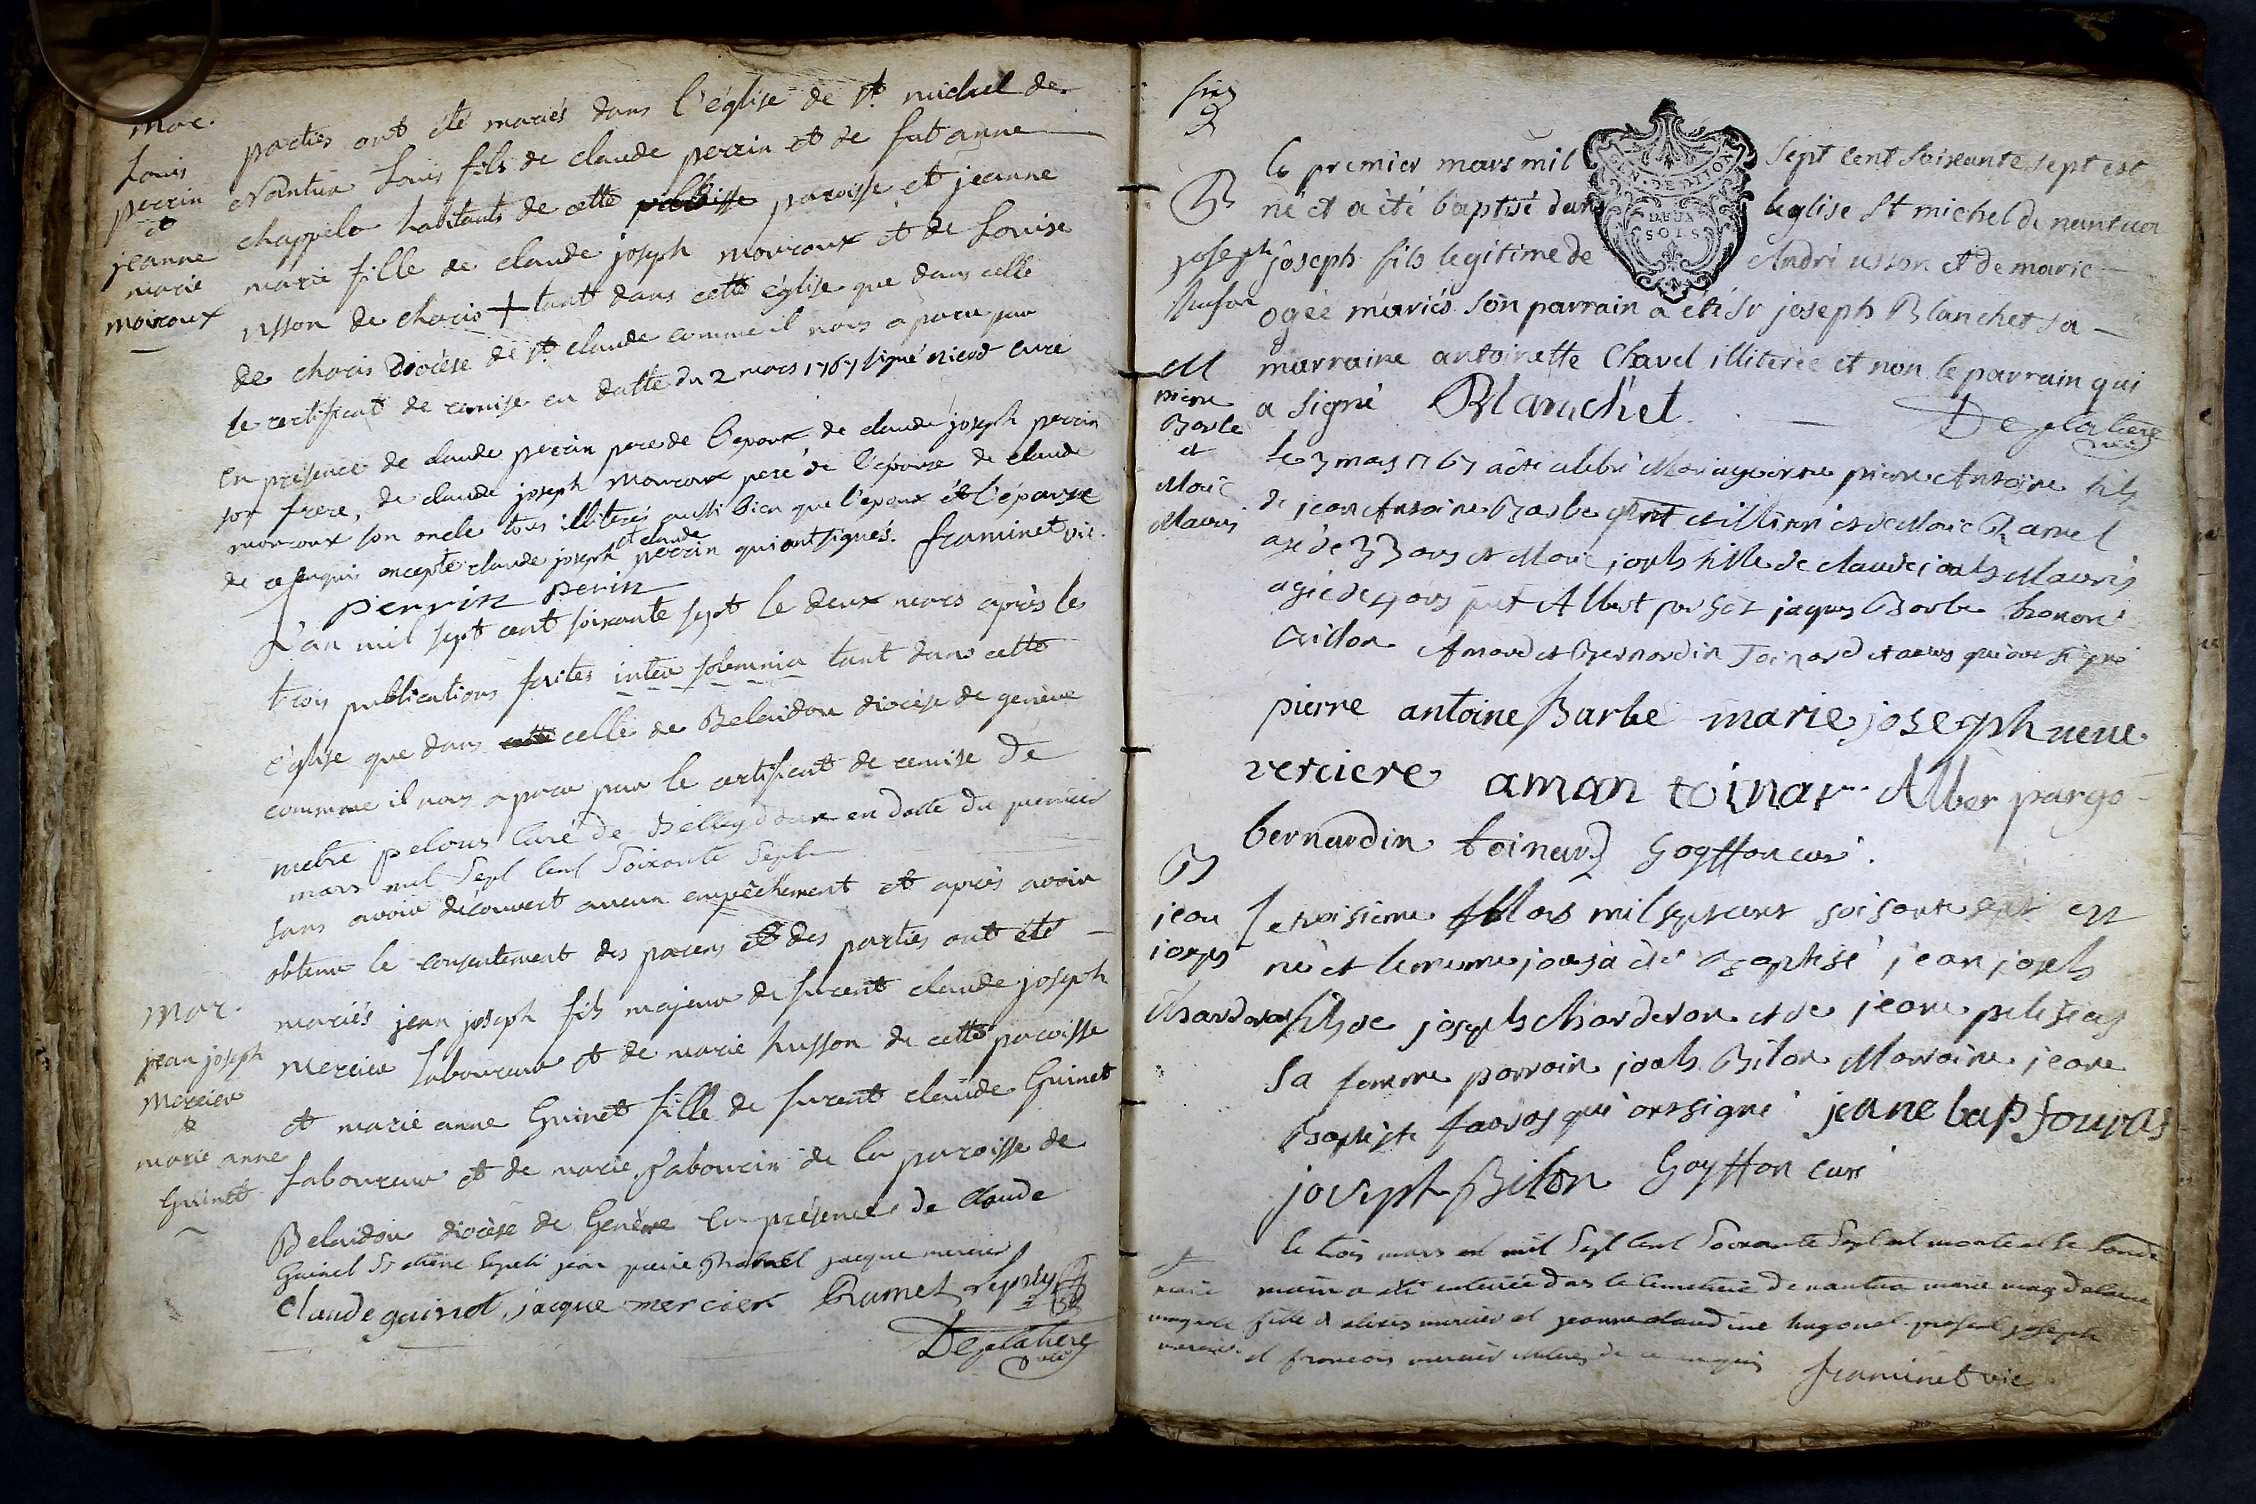 mar.
Louis
perrin
et
jeanne
marie
moiroux
parties ont été mariés dans l'église de st. michel de
Nantua Louis fils de claude perrin et de fut anne
chappela habitants de cette paroisse et jeanne
marie fille de claude joseph moiroux et de Louise
usson de charis + tant dans cette église que dans celle
de charis Diocèse de st. claude comme il nous a paru par
le certificat de remise en datte du 2 mars 1767 signé nicod curé
en présence de claude perrin pere de l'epoux de claude joseph perrin
son frere, de claude joseph moiroux peré de l'épouse de claude
moiroux son oncle tous illiterés aussi bien que l'epoux et l'épouse
de ce enquis excepté claude joseph et claude perrin qui ont signés. framinet vic.
perrin perin
L'an mil sept cent soixante sept le deux mars après les
trois publications faites inter solemnia tant dans cette
église que dans cette celle de Belaidou diocèse de genève
comme il nous a paru par le certificat de remise De
metre pelous Curé de Belleydoux en datte du premier
mars mil Sept Cent Soixante Sept
sans avoir découvert aucun empêchement et après avoir
obtenu le consentement des parens et des parties ont été
mar.
jean joseph
Mercier
&
marie anne
Guinet
mariés jean joseph fils majeur de furent claude joseph
Mercier laboureur et de marie husson de cette paroisse
et marie anne Guinet fille de furent claude Guinet
laboureur et de marie, Tabourin de la paroisse de
Belaidou diocèse de Genève En présence de Claude
Guinet jean pierre Ramel jacque mercier
Claude guinet, jacque mercier Ramet
Deplatiere
vic
B
joseph
husson
le premier mars mil sept cent soixante sept est
né et a été baptisé dans leglise St michel de nantua
joseph fils legitime de André usson et de marie
ogée mariés son parrain a été sr joseph Blanchet sa
marraine antoinette Chavel illiterée et non le parrain qui
a signé Blanchet Deplatiere
vic
M
pierre
Barbe
et
Marie
Mauris
Le 3 mars 1767 a été celebré Mariage entre pierre Antoine fils
de jean Antoine Barbe et de Marie Ramel
agé de 33 ans et Marie joseph fille de claude joseph Mauris
agée de ans pnt Albert jaques Barbe honoré
Amand et Bernardin Toinard et autres qui ont signé
pierre antoine Barbe marie joseph veuve
verciere aman toinar Alber pargo
bernardin toinard Goyffon curé.
B
jean
joseph
Charderon
Le troisieme Mars mil sept cent soisante sept est
né et le meme jour a été Baptisé jean joseph
fils de joseph Charderon et de jeane
sa femme parrain joseph Bilon Marraine jeane
Baptiste favras qui ont signé jeane bap fouras
joseph Bilon Goyffon curé
†
marie
magdele
mercier
le trois mars mil Sept Cent Soixante Sept est morte et le lende
main a été enterrée dans le Cimetiere de nantua marie magdelaine
fille d alexis mercier et jeanne claudine hugonet. present joseph
et francois mercier illiterés de ce enquis framinet vic